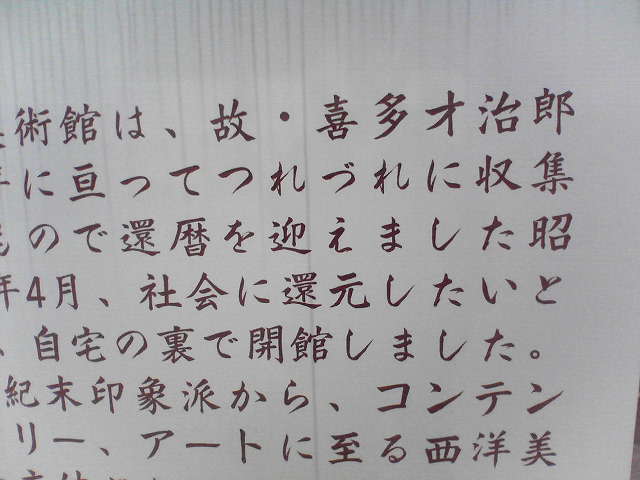 術館は、故・喜多才治郎
に亘ってつれづれに収集
ので還暦を迎えました昭
年4月、社会に還元したいと
、自宅の裏で開館しました。
紀末印象派から、コンテン
リー、アートに至る西洋美